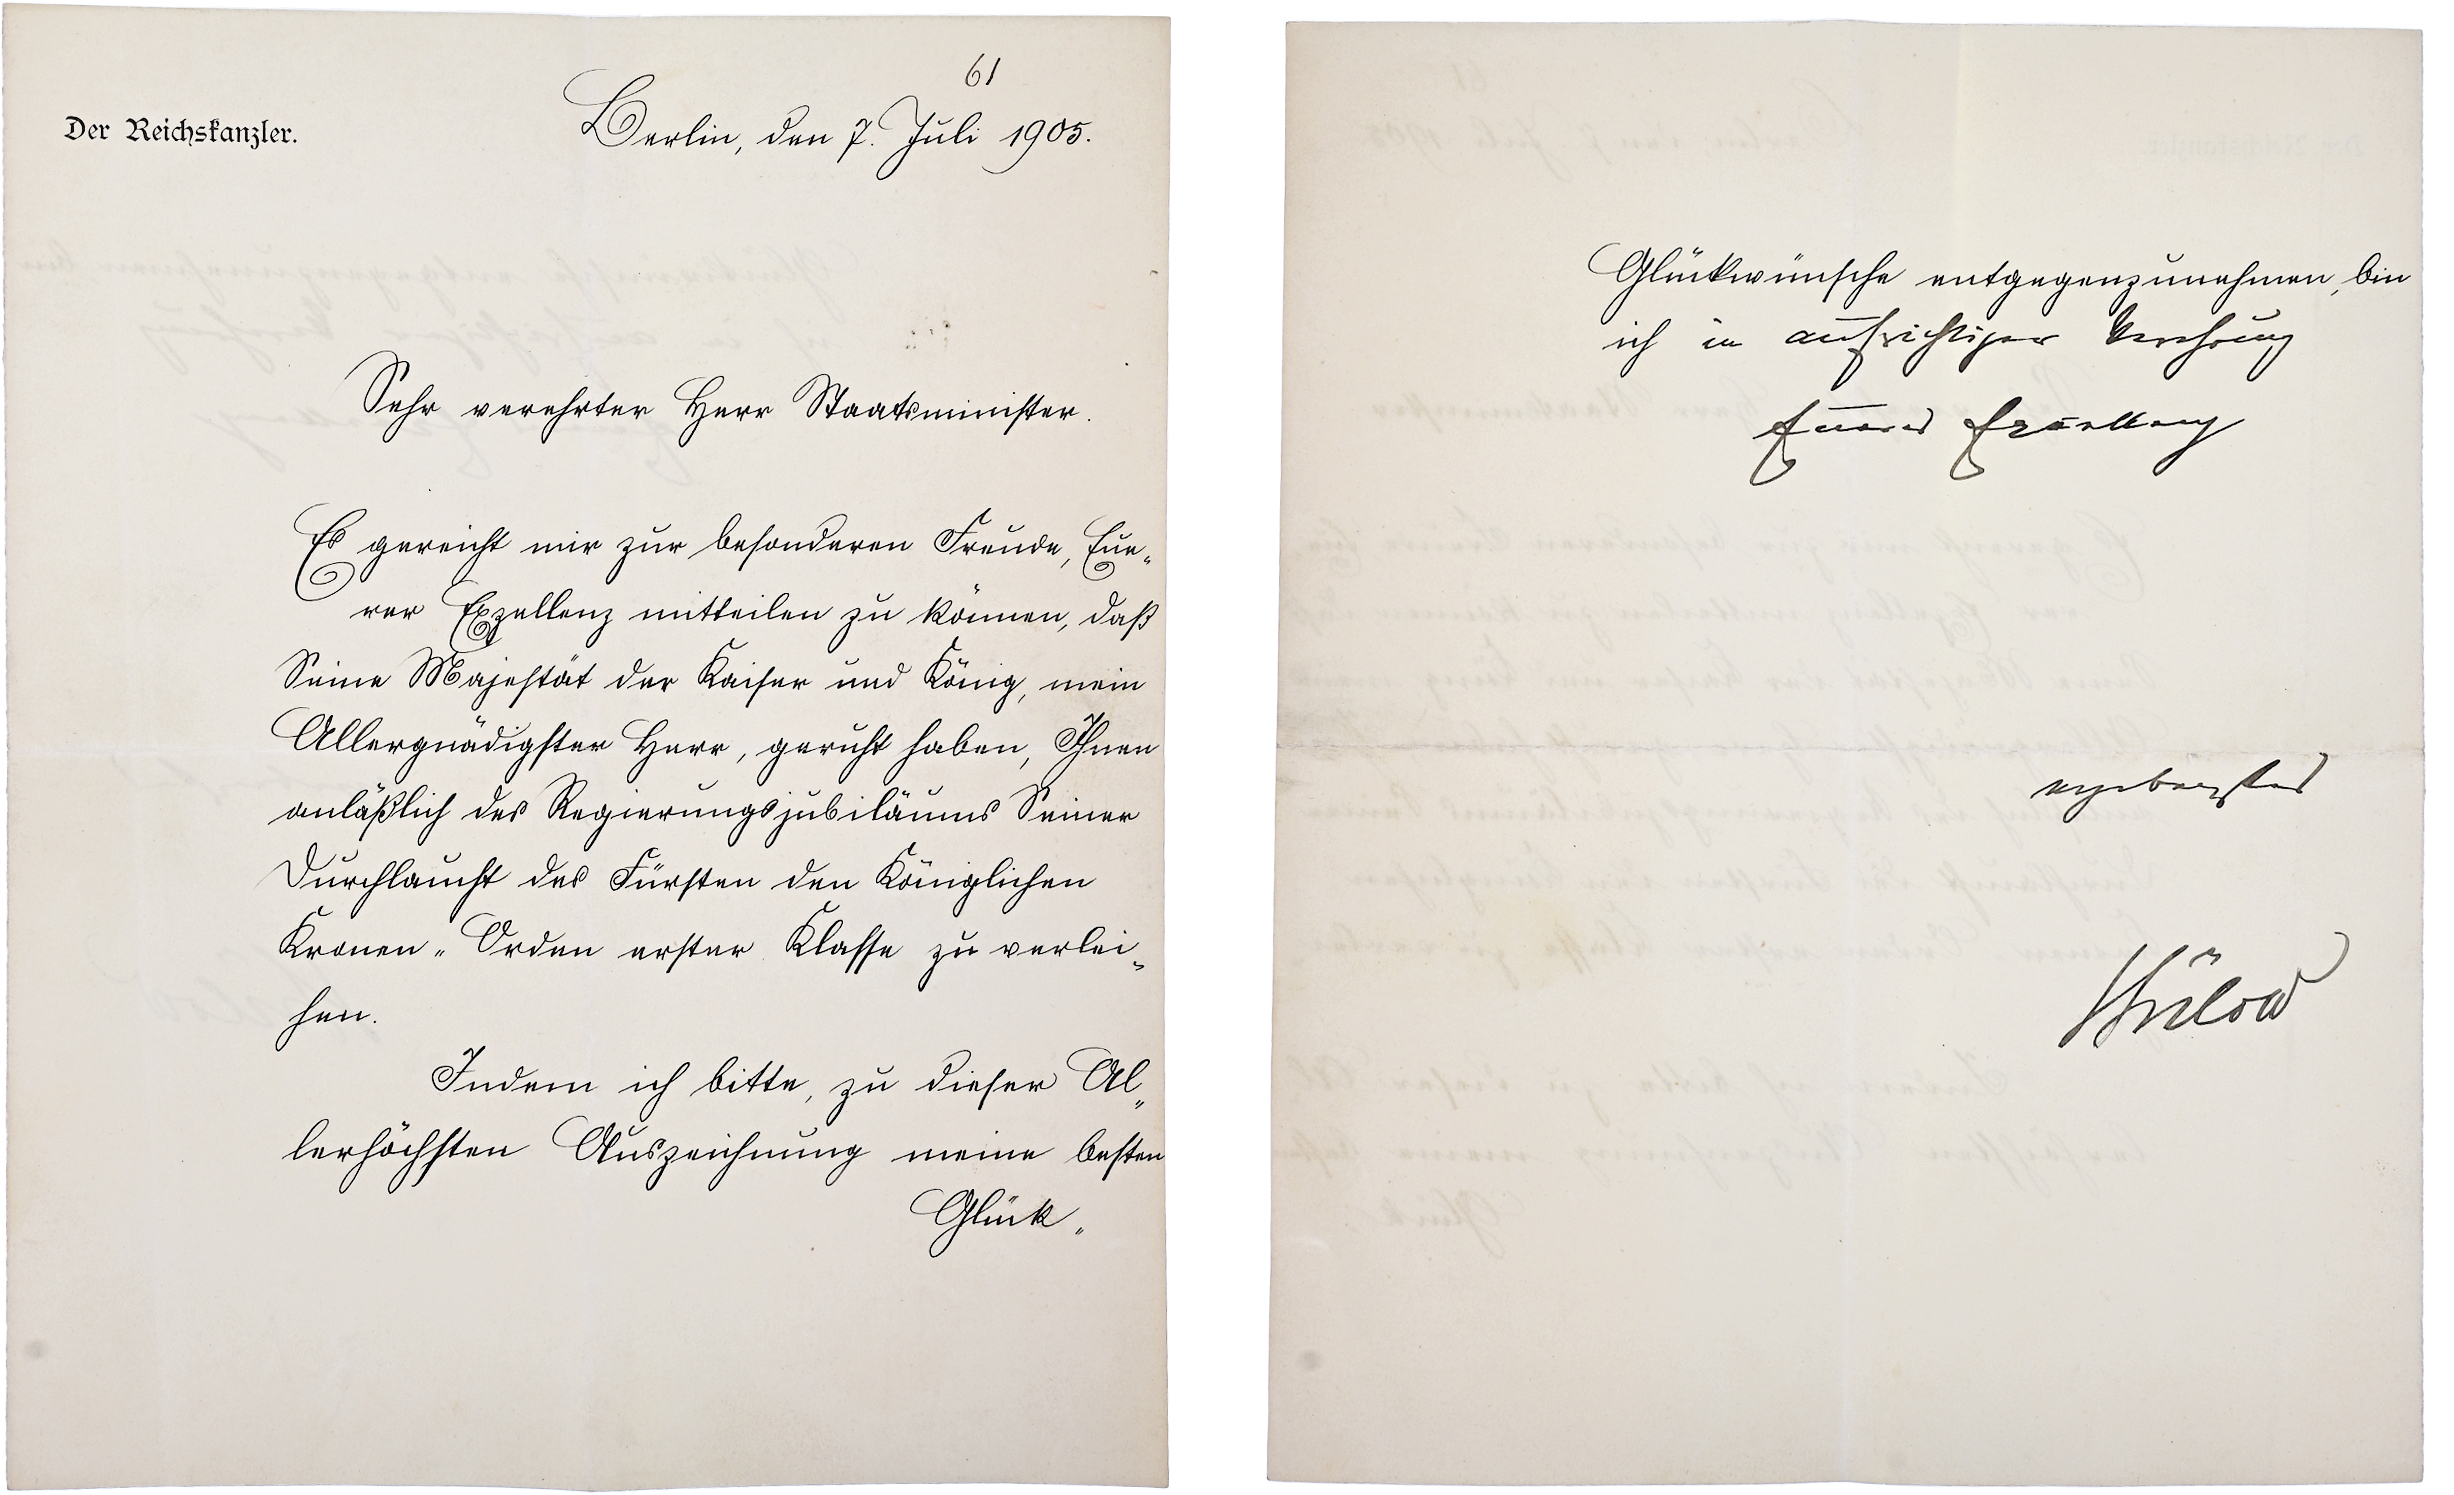 61
Der Reichskanzler.
Berlin, den 7. Juli 1905.
Sehr verehrter Herr Staatsminister.
Es gereicht mir zur besonderen Freude, Eue-
rer Exzellenz mitteilen zu können, daß
Seine Majestät der Kaiser und König, mein
Allergnädigster Herr, geruht haben, Ihnen
anläßlich des Regierungsjubiläums Seiner
Durchlaucht des Fürsten den Königlichen
Kronen-Orden erster Klasse zu verlei-
hen.
Indem ich bitte, zu dieser Al-
lerhöchsten Auszeichnung meine besten
Glück-
Glückwünsche entgegenzunehmen, bin
ich in aufrichtiger Verehrung
Euerer Exzellenz
ergebenster
Bülow